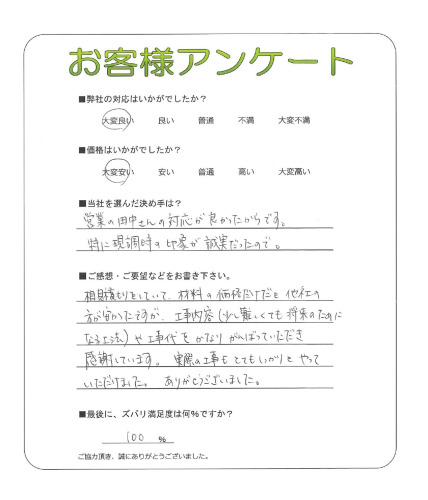 お客様アンケート
■弊社の対応はいかがでしたか？
大変良い 良い 普通 不満 大変不満
■価格はいかがでしたか？
大変安い 安い 普通 高い 大変高い
■当社を選んだ決め手は？
営業の田中さんの対応が良かったからです。
特に現調時の印象が誠実だったので。
■ご感想・ご要望などをお書き下さい。
相見積もりをしていて、材料の価格だけだと他社の
方が安かったですが、工事内容（少し難しくても将来のために
なる工法）や工事代をかなりがんばっていただき
感謝しています。実際の工事もとてもしっかりとやって
いただけました。ありがとうございました。
■最後に、ズバリ満足度は何％ですか？
100 ％
ご協力頂き、誠にありがとうございました。